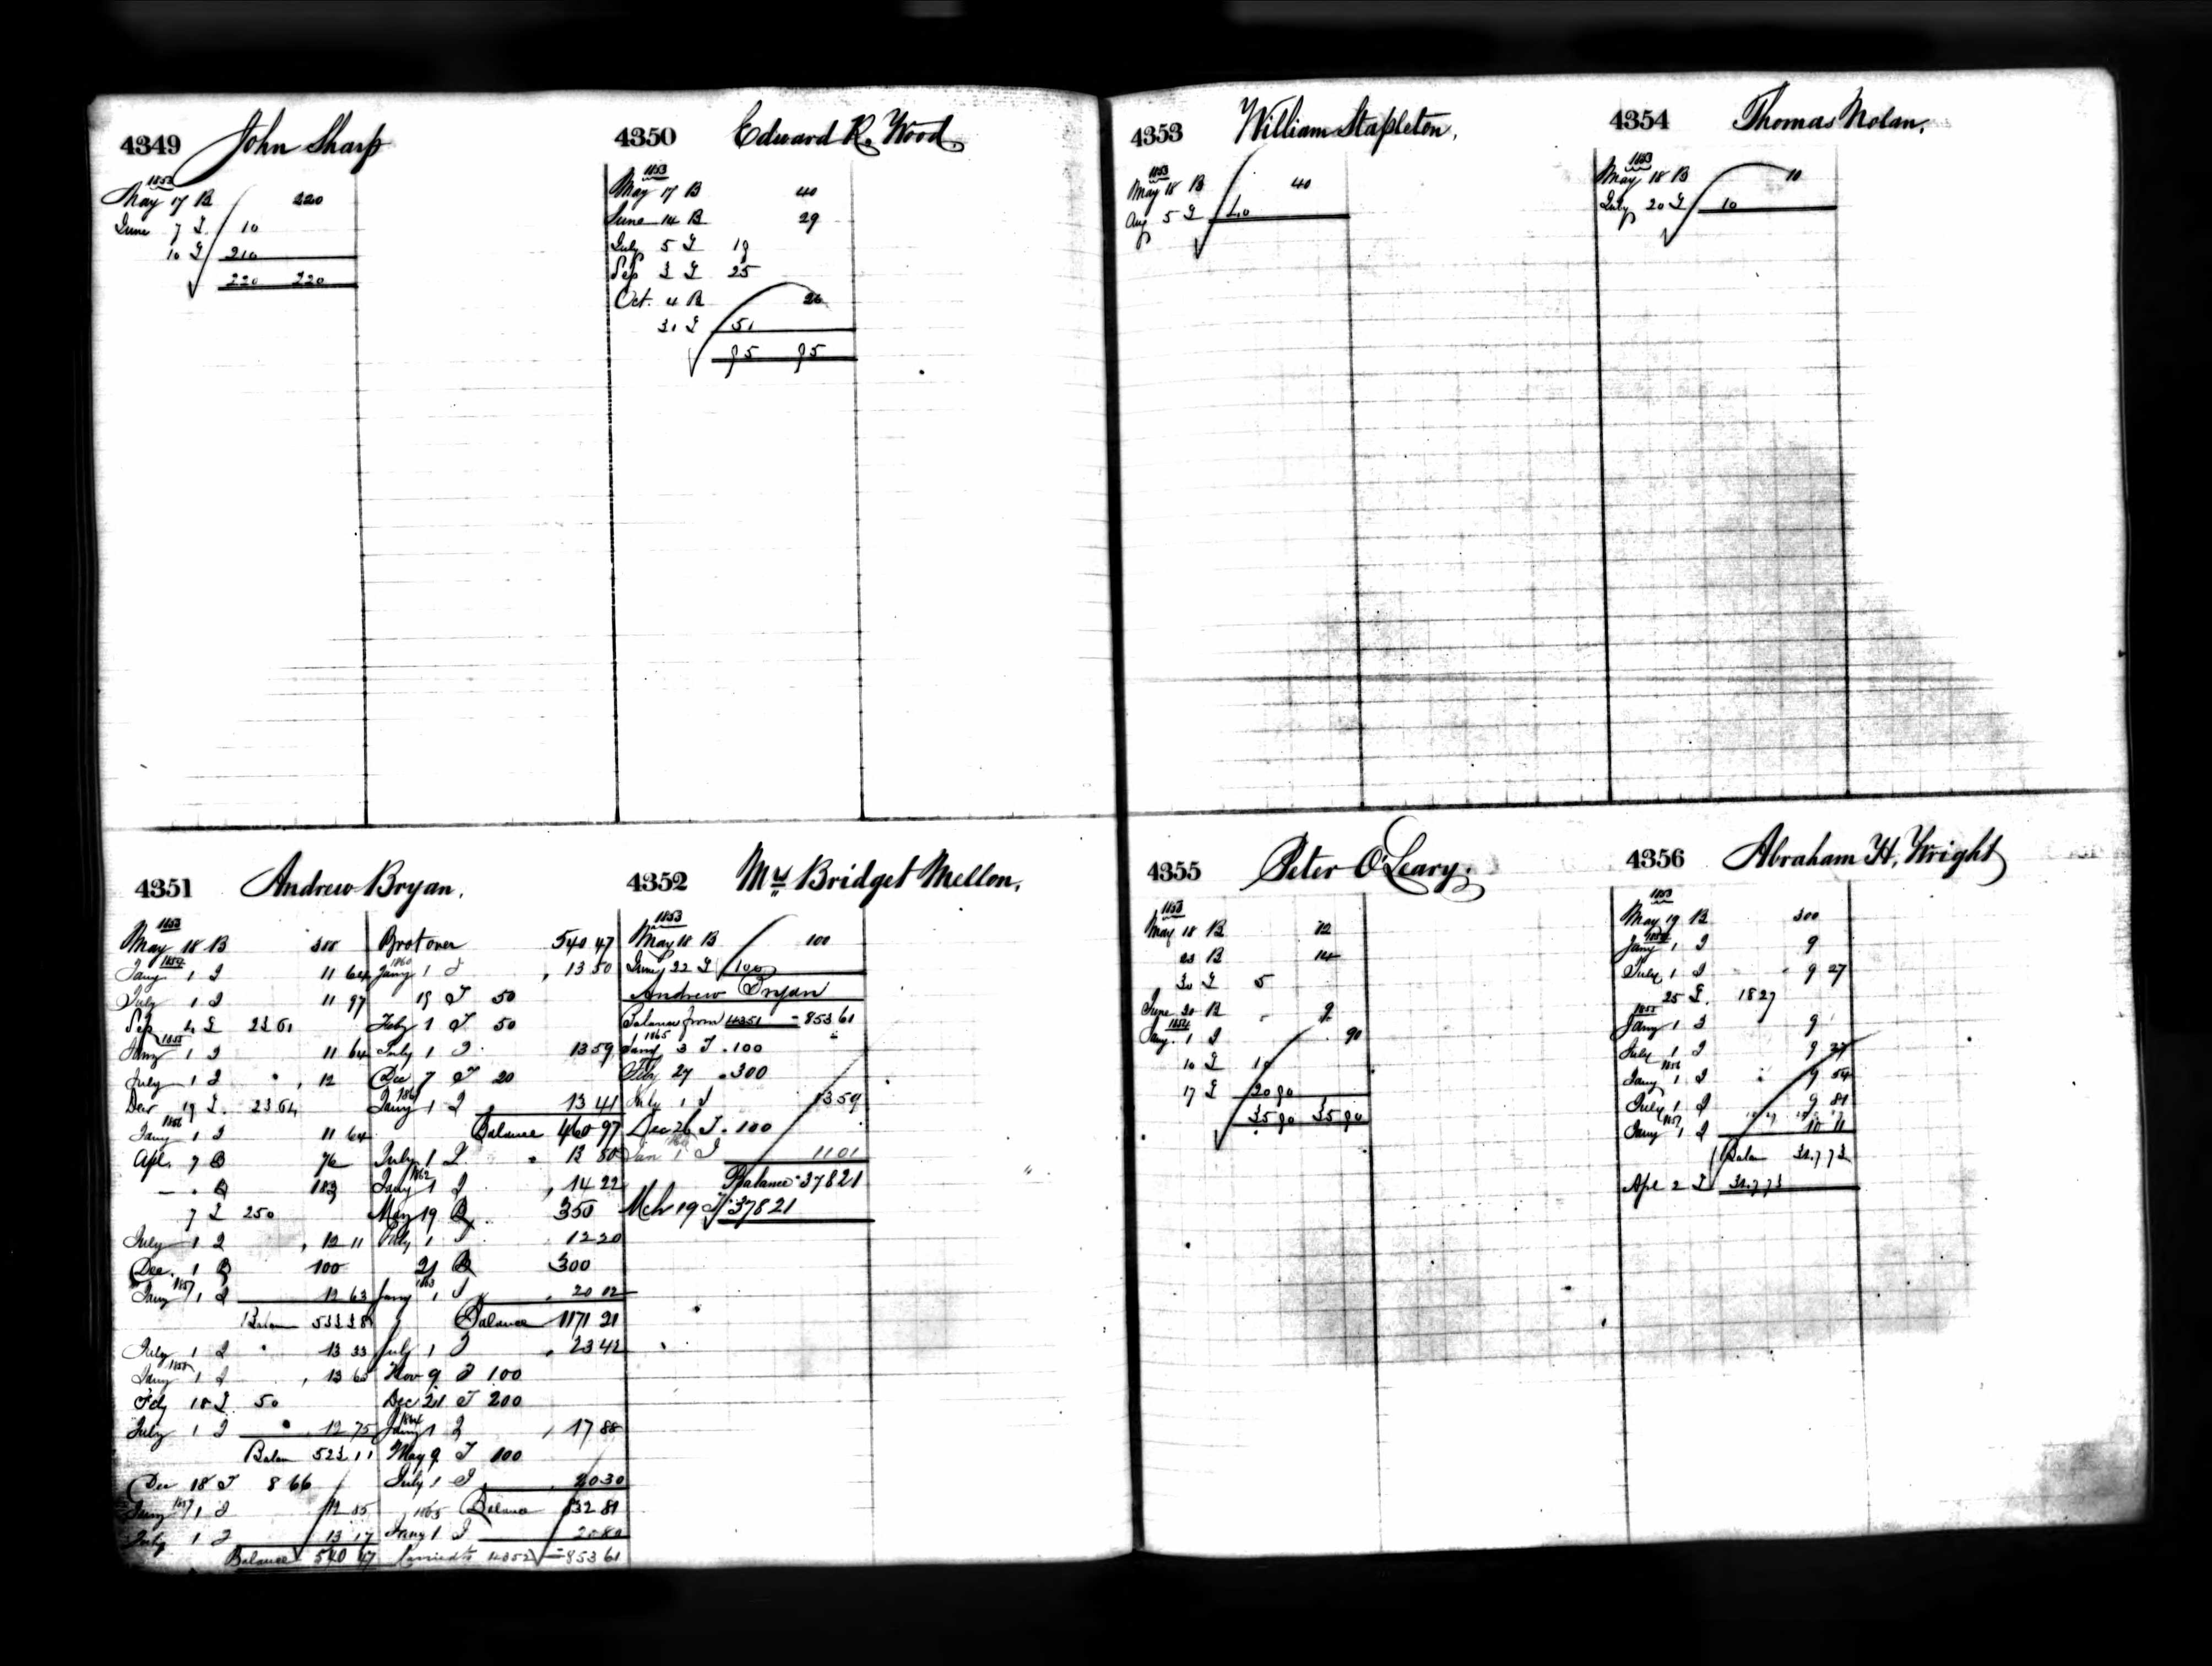 4349 John Sharp
1853
May 17 B 220
June 7 I 10
10 I 210
220 220
4350 Edward R. Wood
1853
May 17 B 40
June 14 B 29
July 5 I 19
Sep 3 I 25
Oct. 4 B 26
31 I 51
95 95
4351 Andrew Bryan.
1853
May 18 B 388
1854
Jany 1 I 11 64
July 1 I 11 97
Sep 4 I 23 61
1855
Jany 1 I 11 64
July 1 I 12
Decr 19 I 23 64
1856
Jany 1 I 11 64
Apl. 7 B 76
B 183
7 I 250
July 1 I 12 11
Dec. 1 B 100
1857
Jany 1 I 12 63
Balan 533 38
July 1 I 13 33
1858
Jany 1 I 13 65
Feby 18 I 50
July 1 I 12 75
Balan 523 11
Dec 18 I 8 66
1859
Jany 1 I 12 85
July 1 I 13 17
Balance 540 47
Brot over 540 47
1860
Jany 1 I 13 50
19 I 50
Feby 1 I 50
July 1 I 13 59
Dec 7 I 20
1861
Jany 1 I 13 41
Balance 460 97
July 1 I 13 80
1862
Jany 1 I 14 22
May 19 B 350
July 1 I 12 20
21 B 300
1863
Jany 1 I 20 02
Balance 1171 21
July 1 I 23 42
Nov 9 I 100
Dec 21 I 200
1864
Jany 1 I 17 88
May 9 I 100
July 1 I 20 30
1865 Balance 832 81
Jany 1 I 20 80
Carried to 4352 = 853 61
4352 Mrs Bridget Mellon.
1853
May 18 B 100
June 22 I 100
Andrew Bryan
Balance from 4351 = 853 61
1865
Jany 3 I 100
Feby 27 300
July 1 I 13 59
Dec 26 I 100
1866
Jan 1 I 11 01
Balance 378 21
Mch 19 I 378 21
4353 William Stapleton.
1853
May 18 B 40
Aug 5 I 40
4354 Thomas Nolan.
1853
May 18 B 10
July 20 I 10
4355 Peter O'Leary.
1853
May 18 B 12
23 B 14
30 I 5
June 20 B 9
1854
Jany. 1 I 90
10 I 10
17 I 20 90
35 90 35 90
4356 Abraham H. Wright
1853
May 19 B 300
1854
Jany 1 I 9
July 1 I 9 27
25 I. 18 27
1855
Jany 1 I 9
July 1 I 9 27
1856
Jany 1 I 9 54
July 1 I 9 81
1857
Jany 1 I 10 11
Balan 347 73
Apl 2 I 347 73